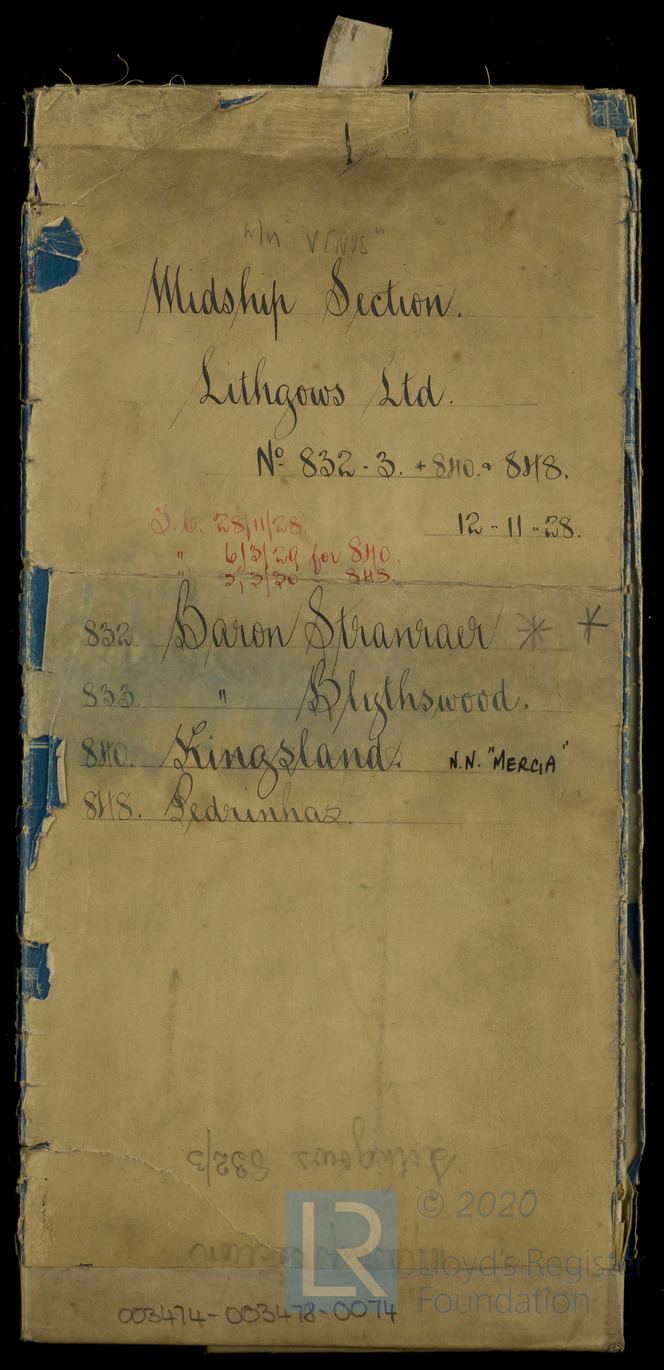 1
N/N "VENUS"
Midship Section.
Lithgows Ltd.
No 832-3. + 840. & 848.
12-11-28.
28/11/28
" 6/3/29 for 840.
" 5/3/30 " 848.
832. Baron Stranraer * *
833. " Blythswood.
840. Kingsland. N.N. "MERCIA"
848. Pedrinhas.
Lithgows 832/3
section
LR
© 2020
Lloyd's Register
Foundation
003474-003478-0074